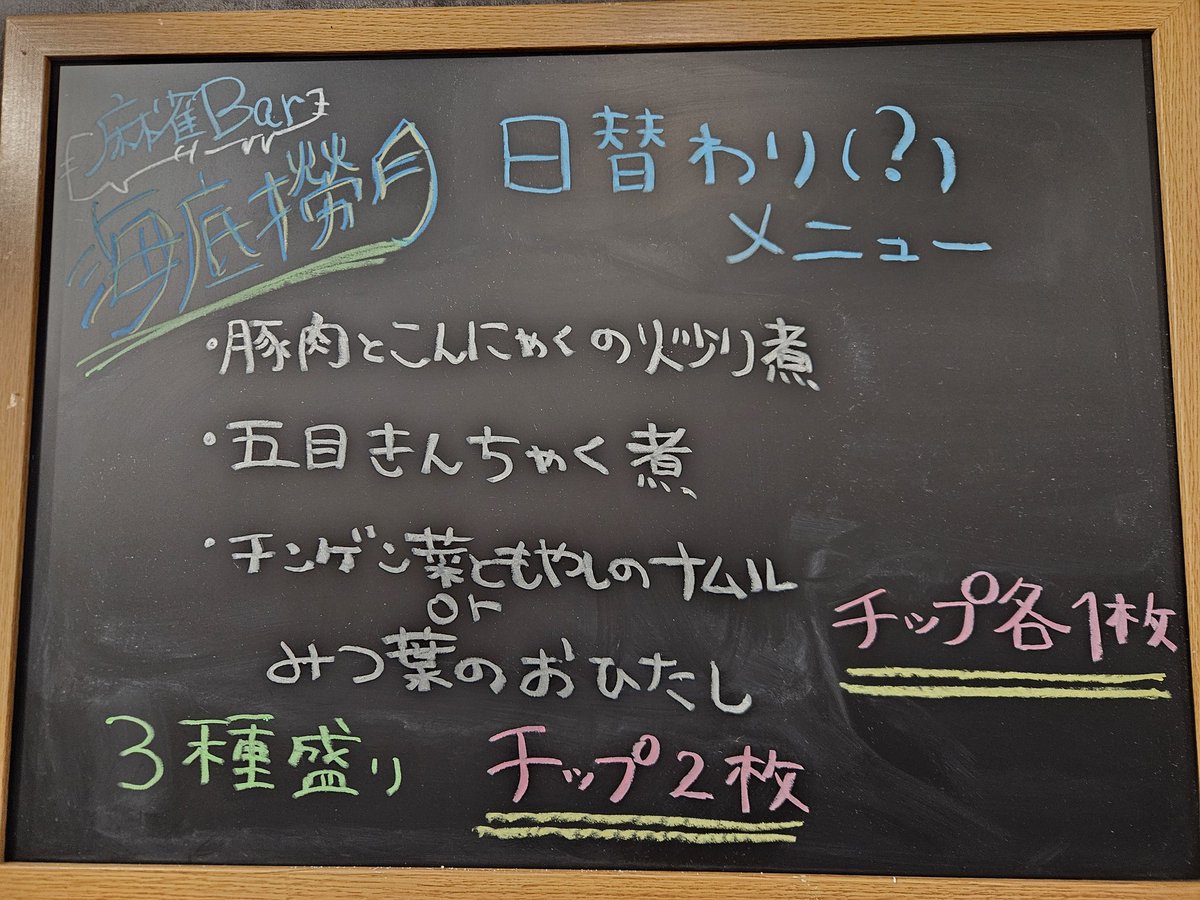 麻雀Bar
海底撈月
日替わり(?)
メニュー
・豚肉とこんにゃくの炒り煮
・五目きんちゃく煮
・チンゲン菜ともやしのナムル
or
みつ葉のおひたし
チップ各1枚
3種盛り
チップ2枚